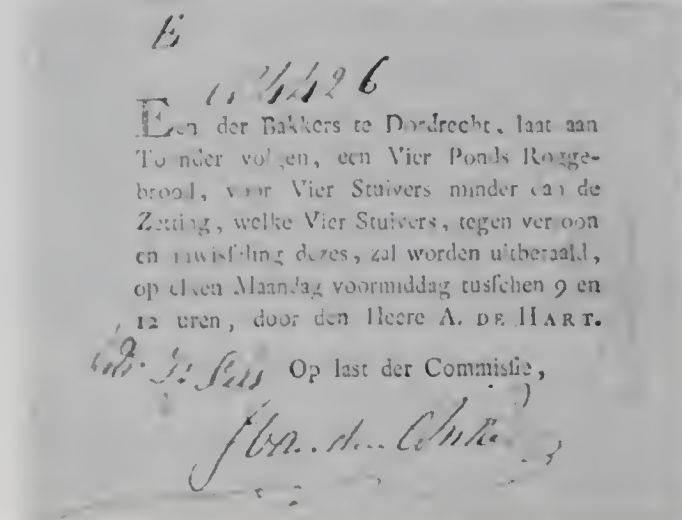 E
4426
Een der Bakkers te Dordrecht, laat aan
Toonder volgen, een Vier Ponds Rogge-
brood, voor Vier Stuivers minder dan de
Zetting, welke Vier Stuivers, tegen vertoon
en inwisſeling dezes, zal worden uitbetaald,
op elken Maandag voormiddag tusſchen 9 en
12 uren, door den Heere A. DE HART.
Op last der Commisſie,